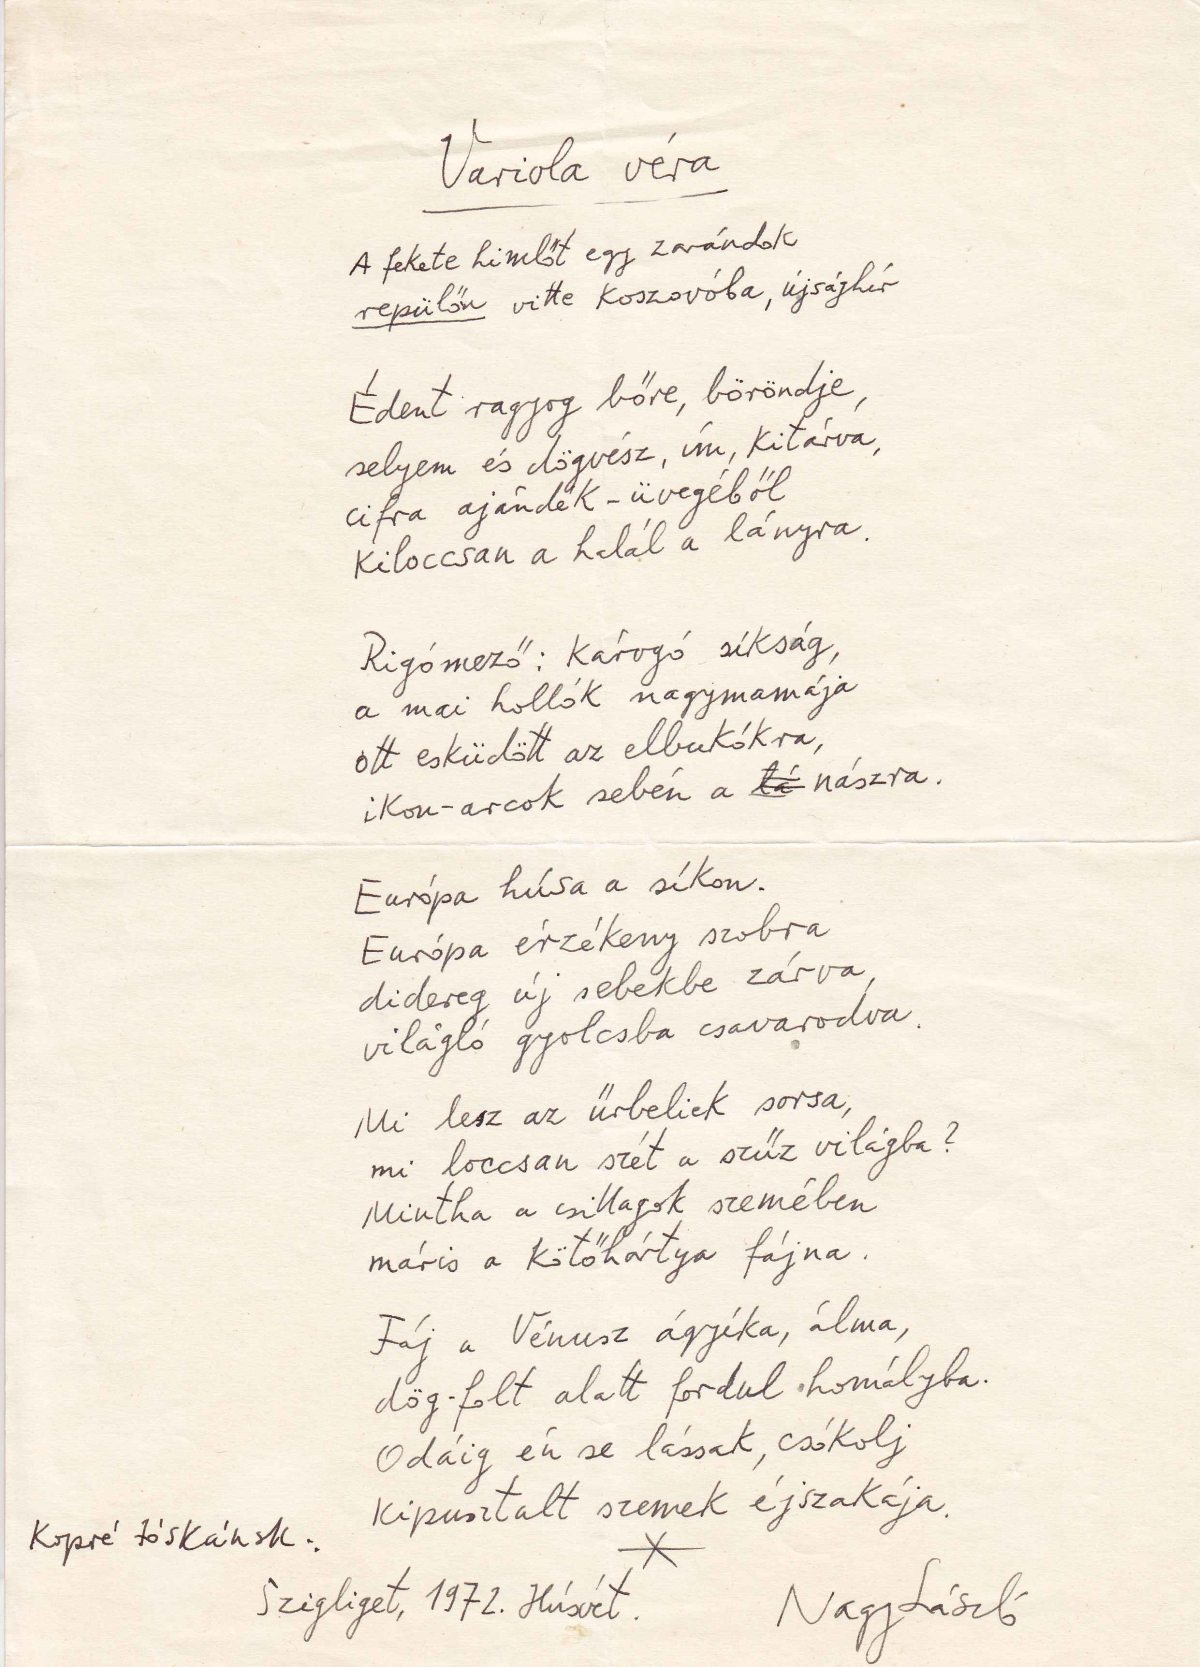 Variola véra
A fekete himlőt egy zarándok
repülőn vitte Koszovóba, újsághír
Édent ragyog bőre, böröndje,
selyem és dögvész, ím, kitárva,
cifra ajándék-üvegéből
kiloccsan a halál a lányra.
Rigómező: károgó síkság,
a mai hollók nagymamája
ott esküdött az elbukókra,
ikon-arcok sebén a tá nászra.
Európa húsa a síkon.
Európa érzékeny szobra
didereg új sebekbe zárva,
világló gyolcsba csavarodva.
Mi lesz az űrbeliek sorsa,
mi loccsan szét a szűz világba?
Mintha a csillagok szemében
máris a kötőhártya fájna.
Fáj a Vénusz ágyéka, álma,
dög-folt alatt fordul homályba.
Odáig én se lássak, csókolj
kipusztalt szemek éjszakája.
Kopré Jóskának.
Szigliget, 1972. Húsvét.
Nagy László